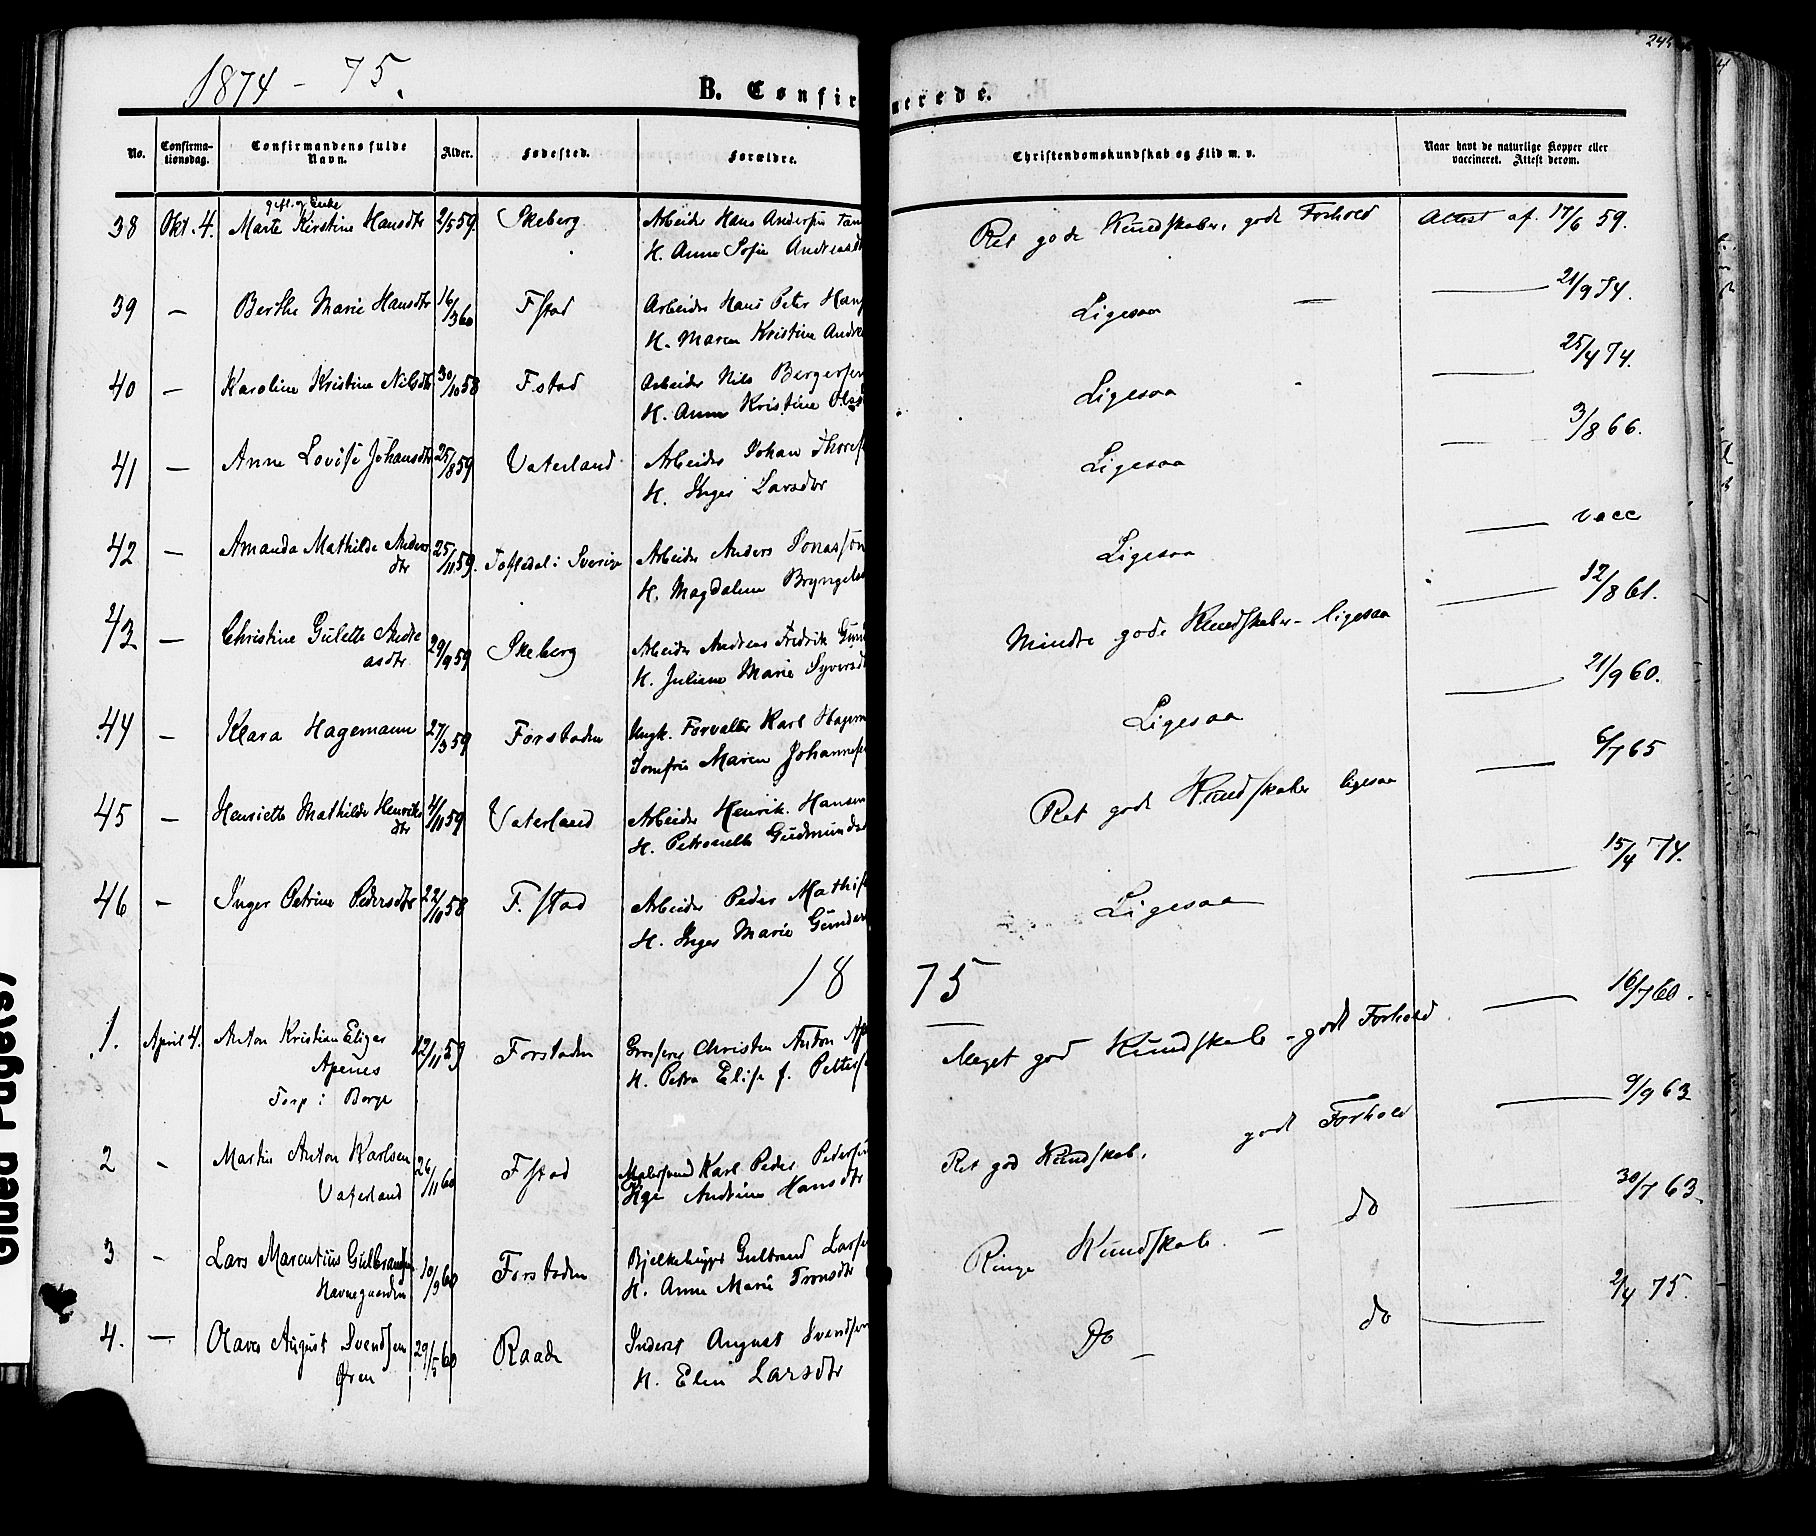 1874 - 75.
B. Confirmerede.
244
No.
Confirmationsdag.
Confirmandens fulde Navn.
Alder.
Fødested.
Forældre.
Christendomskundskab og Flid m. v.
Naar havt de naturlige Kopper eller vaccineret. Attest derom.
38 Okt. 4. Marte Kirstine Hansdtr 2/5 59. Skeberg Arbeider Hans Andersen
H. Anne Sofie Andreasdt
Ret gode Kundskaber, gode Forhold Attest af 17/6 59.
39 — Berthe Marie Hansdtr 16/3 60 Fstad Arbeider Hans Peter Hans
H. Maren Kristine Andre
Ligesaa — — 21/9 74.
40 — Karoline Kristine Nilsdtr 30/10 58 F.stad Arbeider Nils Bergersen
H. Anne Kristine Ols
Ligesaa — 25/4 74.
41 — Anne Lovise Johansdtr 25/8 59 Vaterland Arbeider Johan Thores
H. Inger Larsdtr
Ligesaa — 3/8 66.
42 — Amanda Mathilde Anders
dtr 25/11 59. Tøftedal i Sverige Arbeider Anders Jonasson
H. Magdalene Bryngels
Ligesaa — vacc
43 — Christine Gulette Andre
asdtr 29/9 59 Skeberg Arbeider Andreas Fredrik Gun
H. Juliane Marie Syversdt
Mindre gode Kundskaber - ligesaa — 12/8 61.
44 — Klara Hagemann 27/3 59 Forstaden Ungk. Forvalter Karl Hagem
Jomfru Maren Johannes
Ligesaa — 21/9 60.
45 — Henriette Mathilde Henriks
dtr 4/11 59 Vaterland Arbeider Henrik Hansen
H. Petronelle Gudmundsd
Ret gode Kundskaber ligesaa — 6/7 65
46 — Inger Petrine Pedersdtr 22/10 58 F.stad Arbeider Peder Mathis
H. Inger Marie Gunders
Ligesaa — 15/4 74.
1875
1. April 4. Anton Kristian Eliger
Apenes
Torp i Borge 12/11 59 Forstaden Grosserer Christen Anton Ap
H. Petra Elise f. Petters
Meget god Kundskab - godt Forhold — 16/7 60.
2 - Martin Anton Karlsen
Vaterland 26/11 60 Fstad Malersvend Karl Peder Pedersen
Pige Andrine Hansdtr
Ret god Kundskab. godt Forhold — 9/9 63
3 - Lars Marentius Gulbrands
Havnegaarden 10/9 60 Forstaden Bjelkehugger Gulbrand Larse
H. Anne Marie Tronsdtr
Ringe Kundskab. — do — 30/7 63.
4. — Olaves August Svendsen
Øren 29/5 60 Raade Inderst August Svendsen
H. Elen Larsdtr
Do — do — 2/4 75.